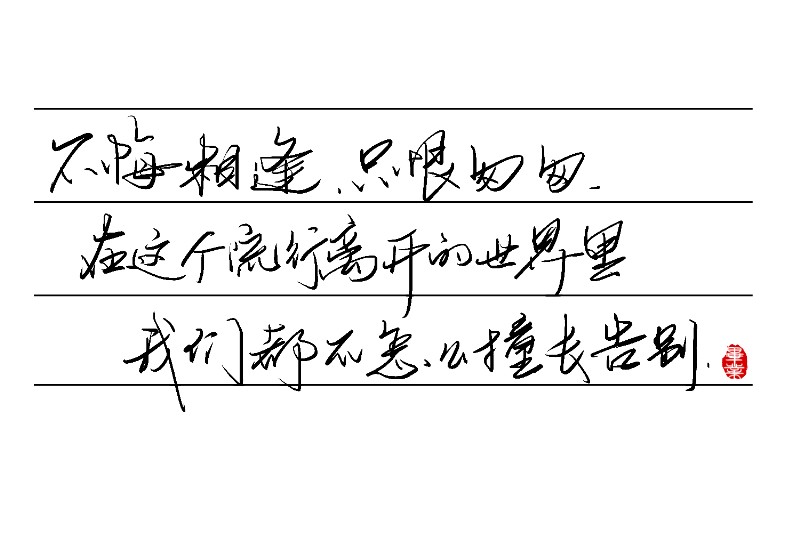 不悔相逢、只恨匆匆.
在这个流行离开的世界里
我们都不怎么撞长告别.
毕业